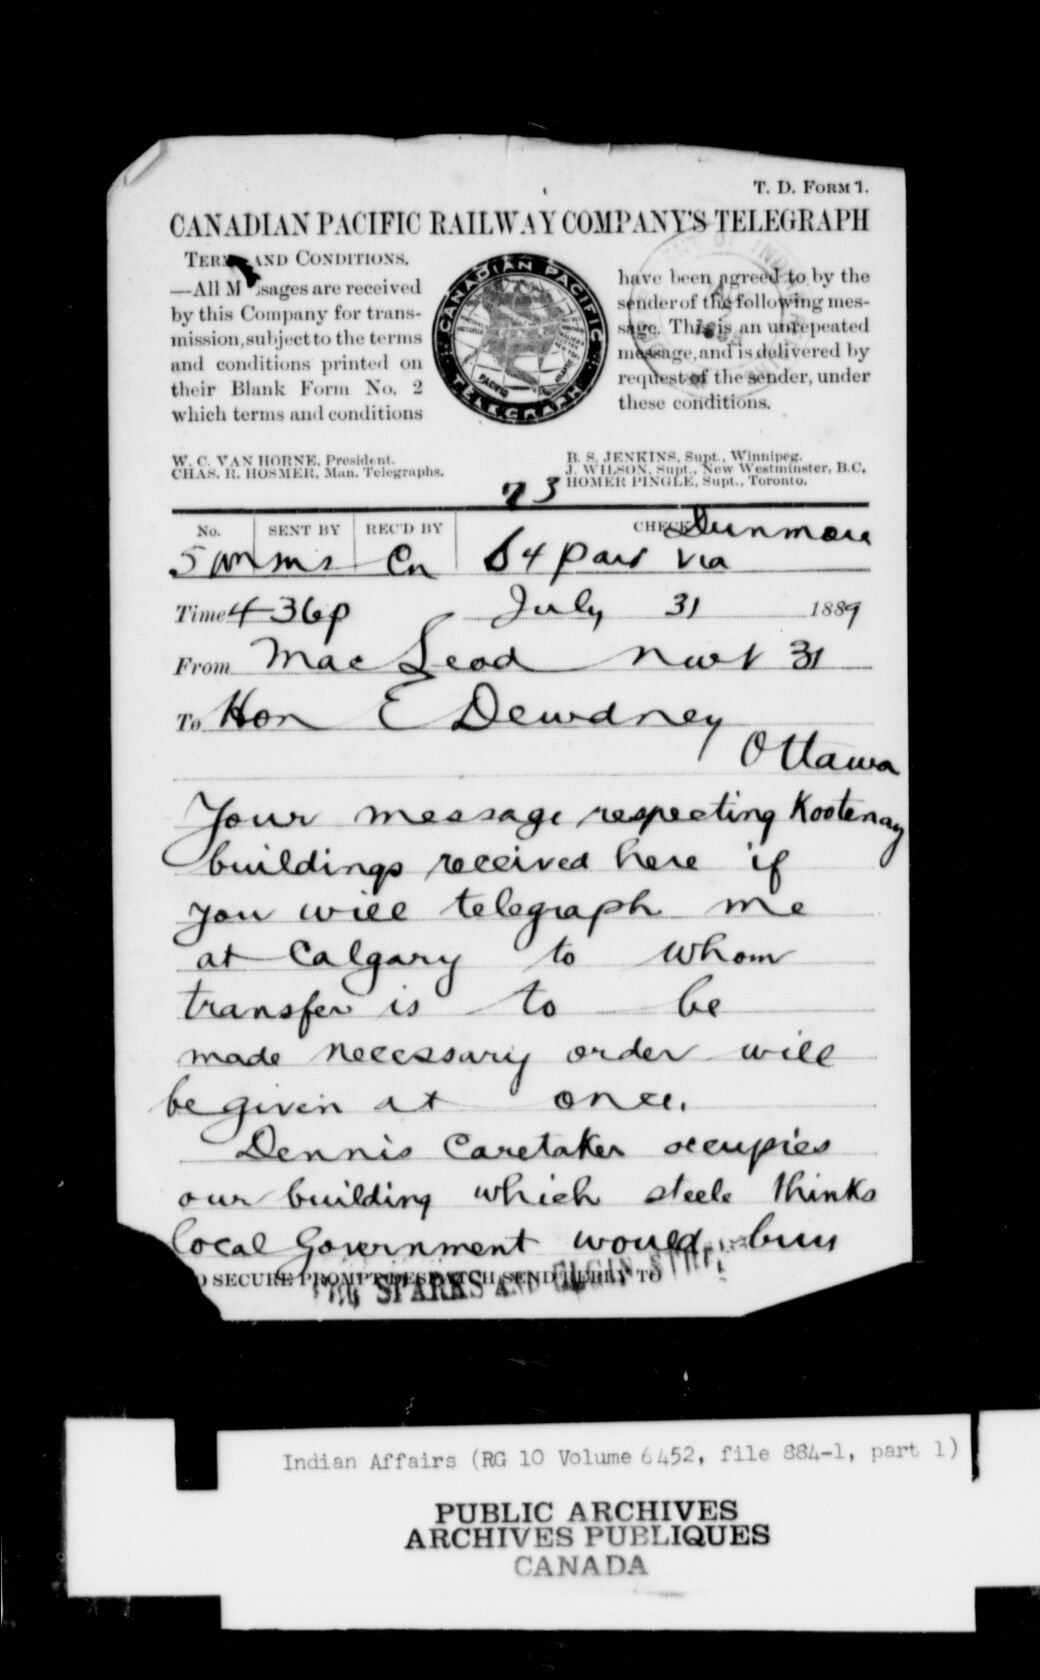 T. D. FORM 1.
CANADIAN PACIFIC RAILWAY COMPANY'S TELEGRAPH
TERMS AND CONDITIONS.
—All Messages are received
by this Company for trans-
mission, subject to the terms
and conditions printed on
their Blank Form No. 2
which terms and conditions
CANADIAN PACIFIC
TELEGRAPH
have been agreed to by the
sender of the following mes-
sage. This is an unrepeated
message, and is delivered by
request of the sender, under
these conditions.
W. C. VAN HORNE, President.
CHAS. R. HOSMER, Man. Telegraphs.
B. S. JENKINS, Supt., Winnipeg.
J. WILSON, Supt., New Westminster, B.C.
HOMER PINGLE, Supt., Toronto.
73
No. SENT BY REC'D BY CHECK Dunmore
Cn 64 paid via
Time 4 36p July 31 1889
From MacLeod Nwt 31
To Hon E Dewdney
Ottawa
Your message respecting Kootenay
buildings received here if
you will telegraph me
at Calgary to whom
transfer is to be
made necessary order will
be given at once.
Dennis Caretaker occupies
our building which steele thinks
local Government would buy
TO SECURE PROMPT DESPATCH SEND REPLY TO
SPARKS AND ELGIN STR
Indian Affairs (RG 10 Volume 6452, file 884-1, part 1)
PUBLIC ARCHIVES
ARCHIVES PUBLIQUES
CANADA